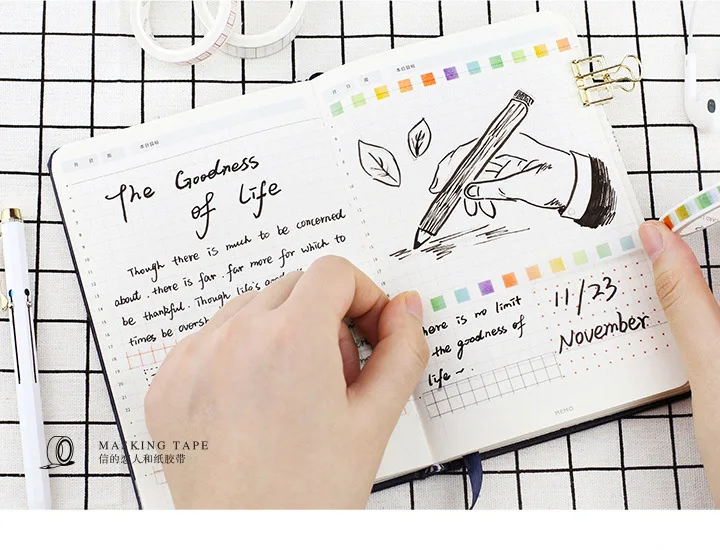 月 日 周 本日目标
The Goodness
of Life
Though there is much to be concerned
about, there is far, far more for which to
be thankful. Though life's
times be
月 日 周 本日目标
here is no limit
the goodness of
life ~
11/23
November
MEMO
MASKING TAPE
信的恋人和纸胶带